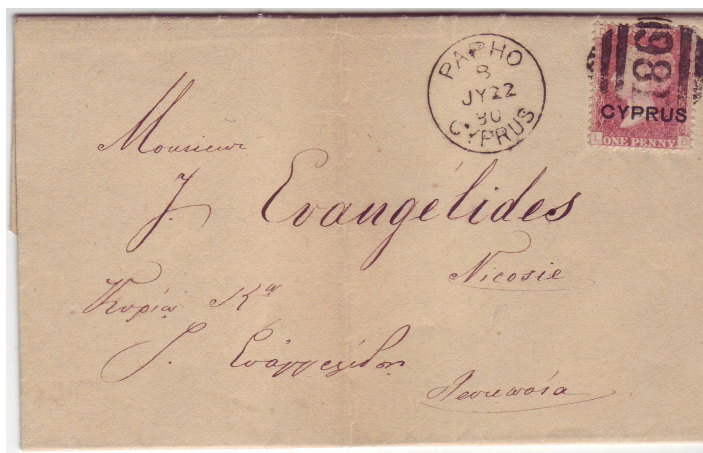 PAPHO
B
JY 22
80
CYPRUS
98
CYPRUS
ONE PENNY
Monsieur
J. Evangélides
Nicosie
Κυρίῳ Κῳ
Ι. Εὐαγγελίδῃ
Λευκωσία